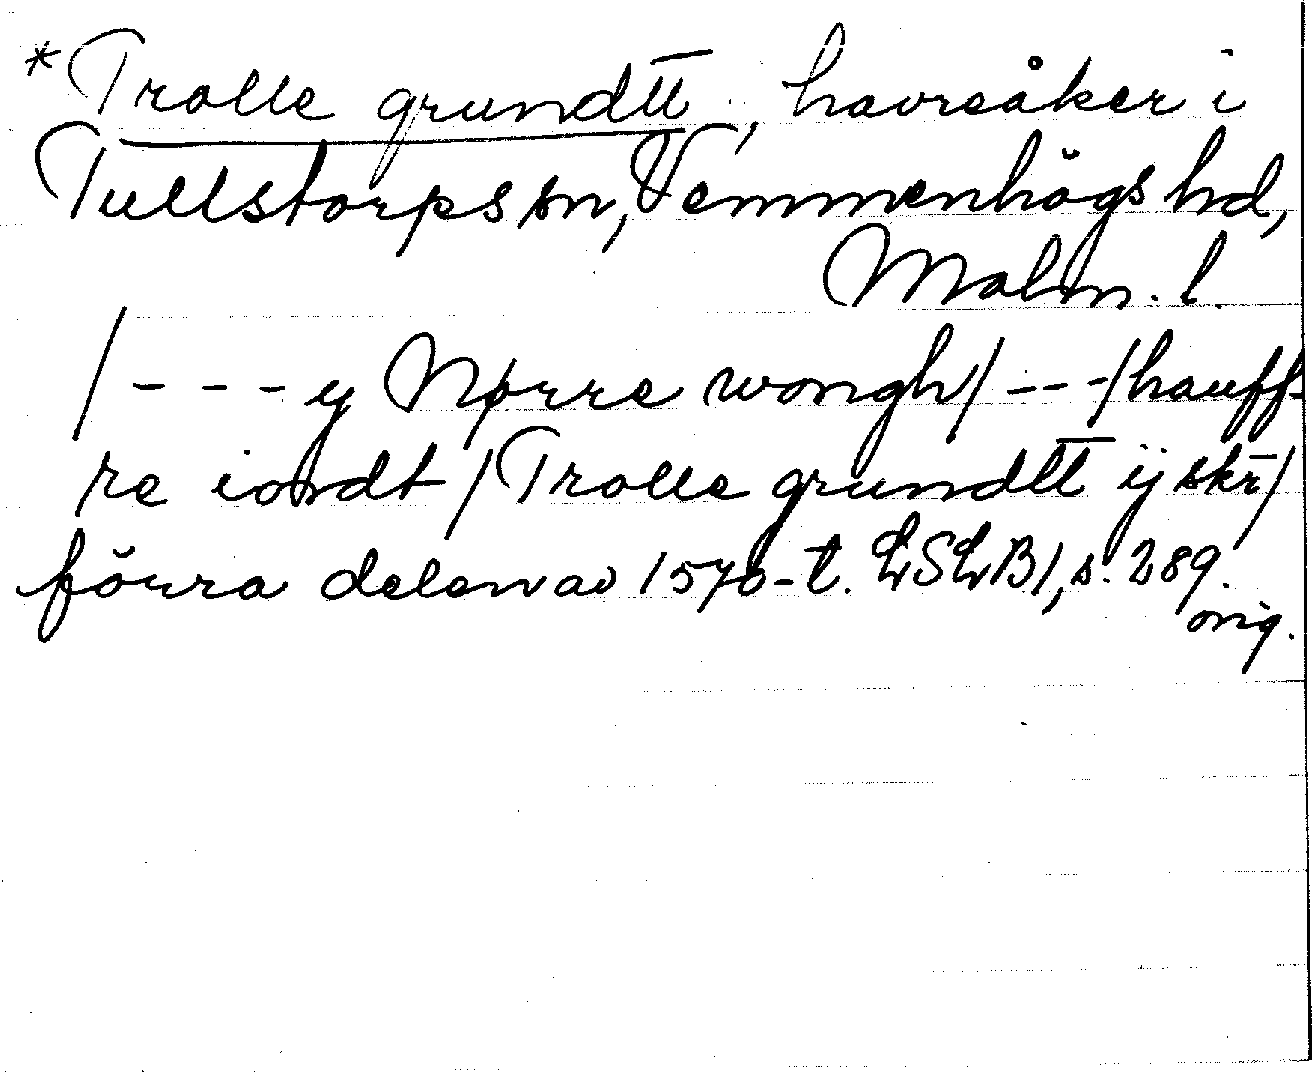 *Trolle grundtt, havreåker i
Tullstorps sn, Vemmenhögs hd,
Malm. l.
/- - - y Nørre wongh/ - - -/hauff-
re iordt / Trolle grundtt ij skr̄/
förra delen av 1570-t. LSLB1, s. 289.
orig.